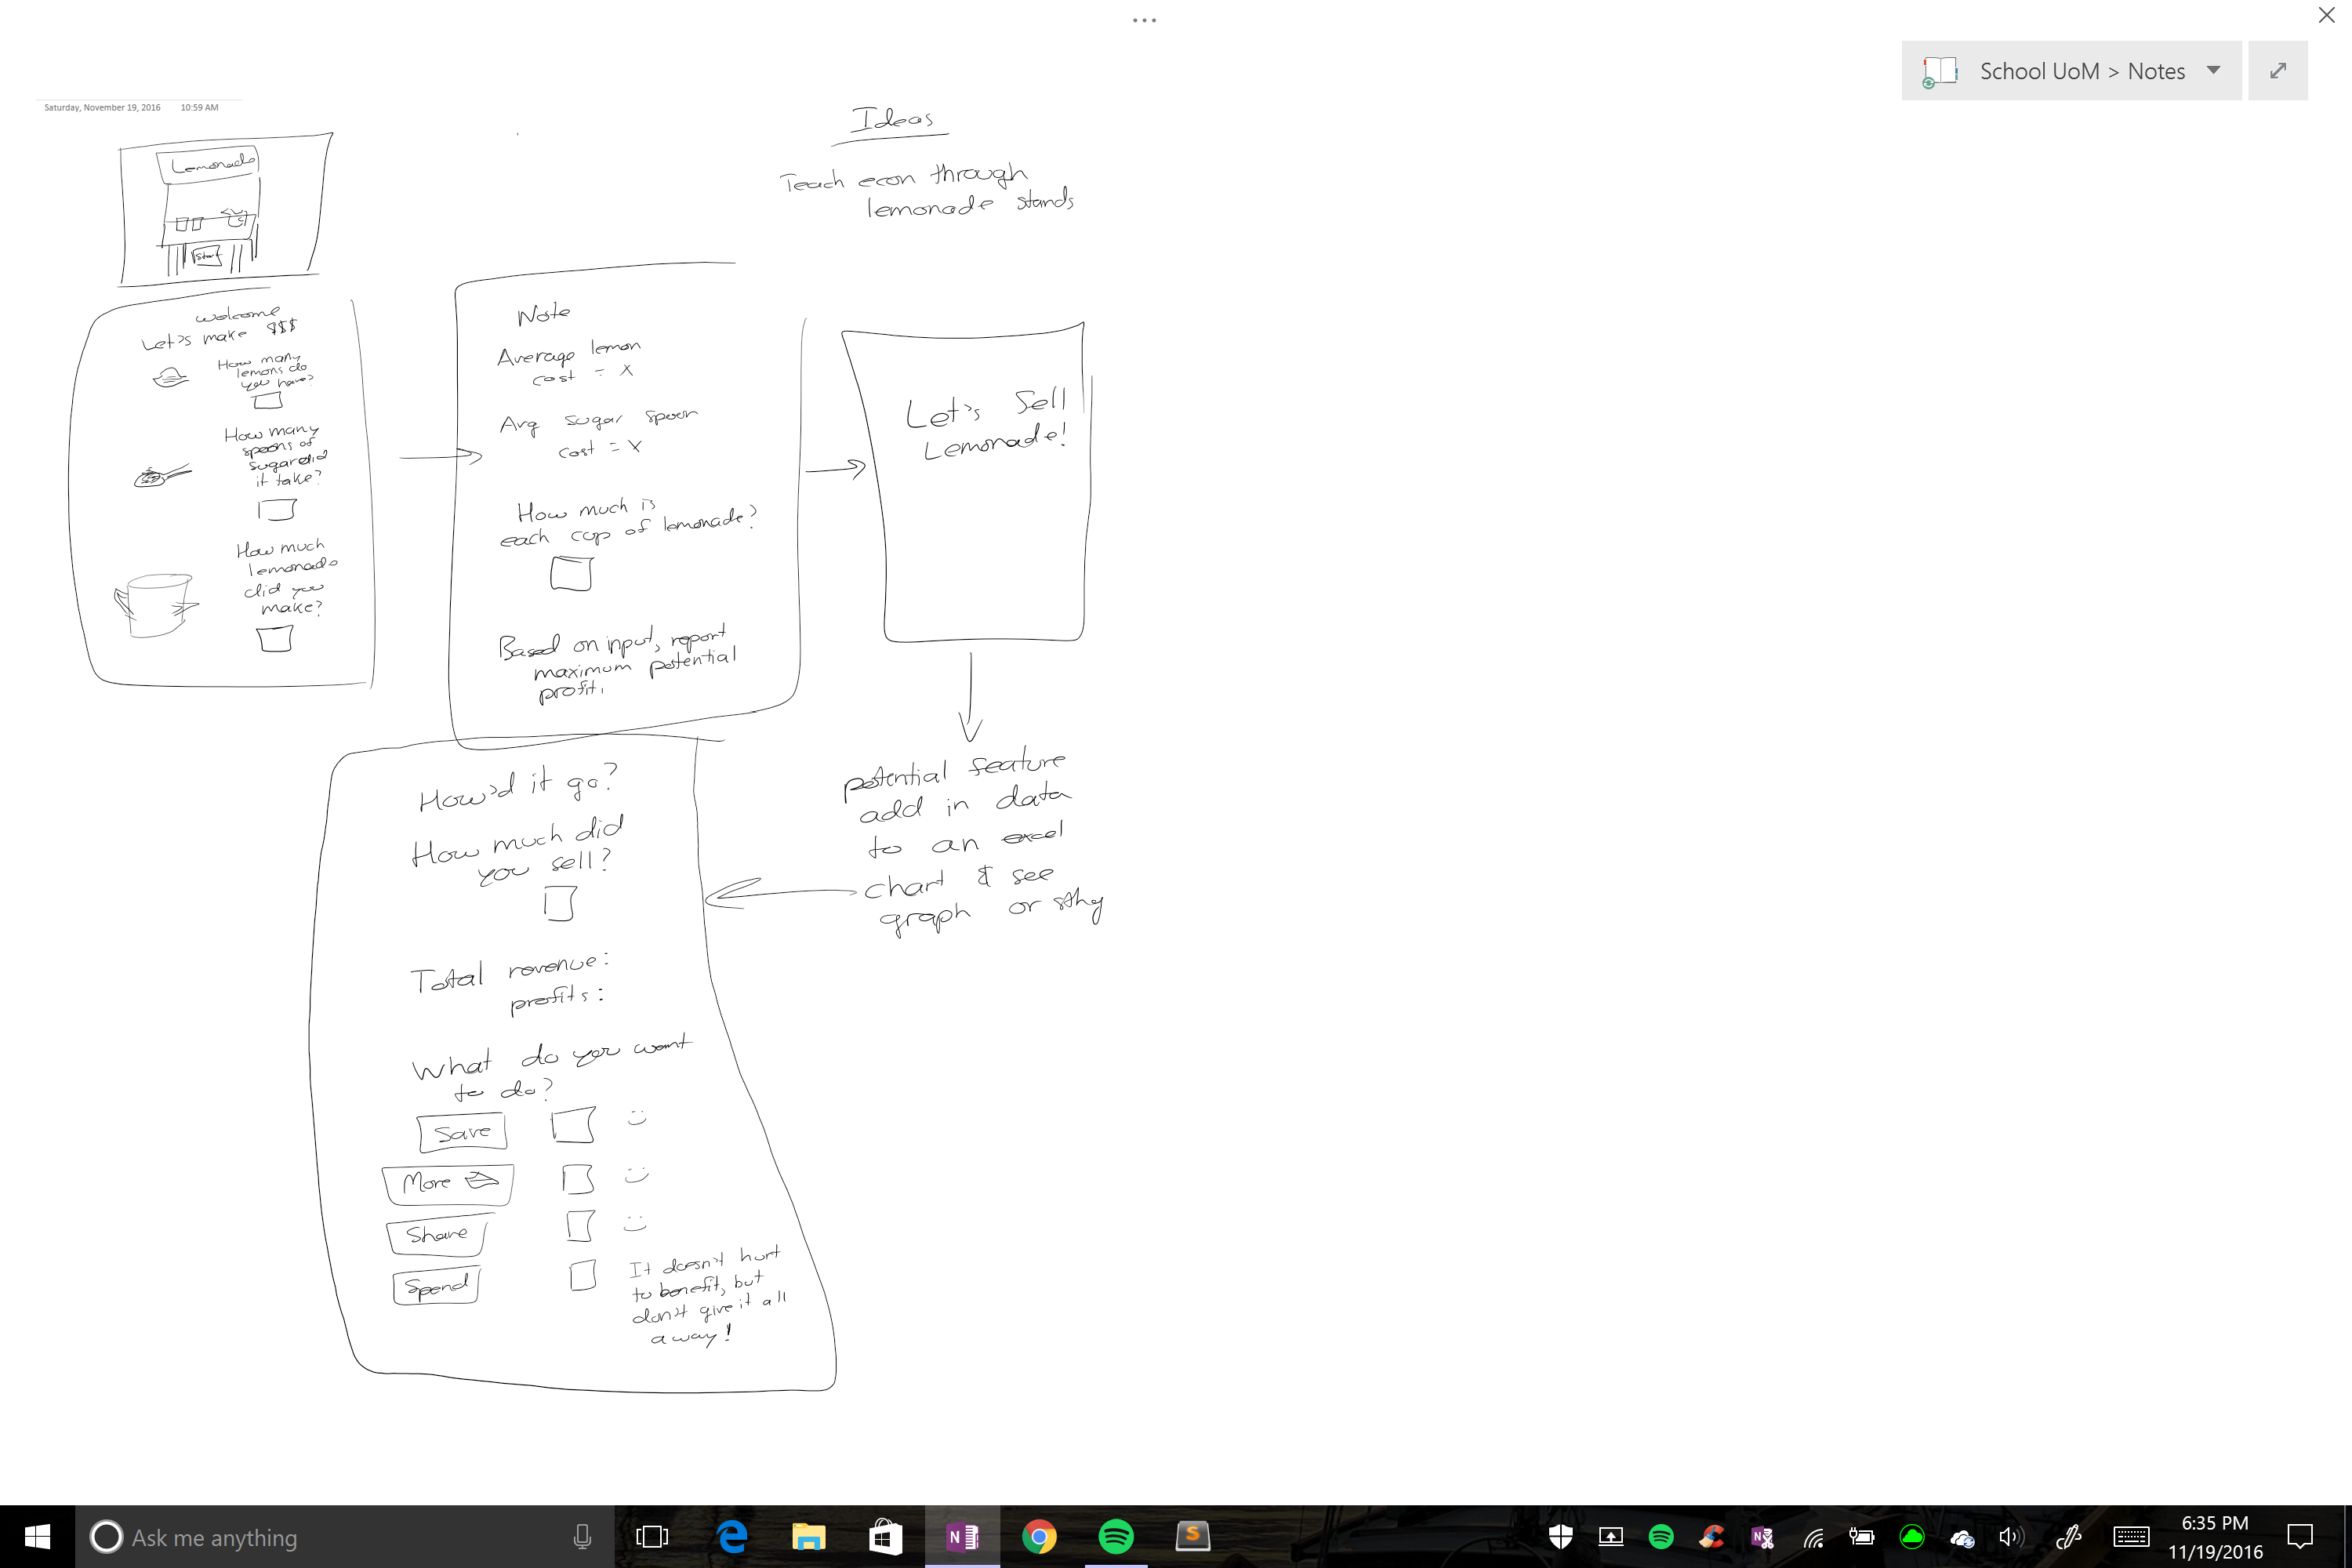 School UoM > Notes
Saturday, November 19, 2016 10:59 AM
Ideas
Teach econ through
lemonade stands
Lemonade
Start
Welcome
Let's make $$$
How many
lemons do
you have?
How many
spoons of
sugar did
it take?
How much
lemonade
did you
make?
Note
Average lemon
cost = X
Avg sugar spoon
cost = X
How much is
each cup of lemonade?
Based on input, report
maximum potential
profit.
Let's Sell
Lemonade!
potential feature
add in data
to an excel
chart & see
graph or sthg
How'd it go?
How much did
you sell?
Total revenue:
profits:
What do you want
to do?
Save
More
Share
Spend
It doesn't hurt
to benefit, but
don't give it all
away!
Ask me anything
N
S
6:35 PM
11/19/2016